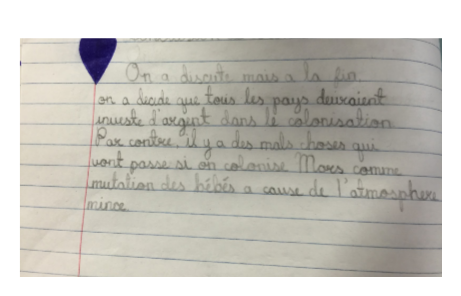 On a discute mais a la fin,
on a decide que tous les pays devraient
investe d'argent dans le colonisation
Par contre, il y a des mals choses qui
vont passe si on colonise Mars comme
mutation des bébés a cause de l'atmosphere
mince